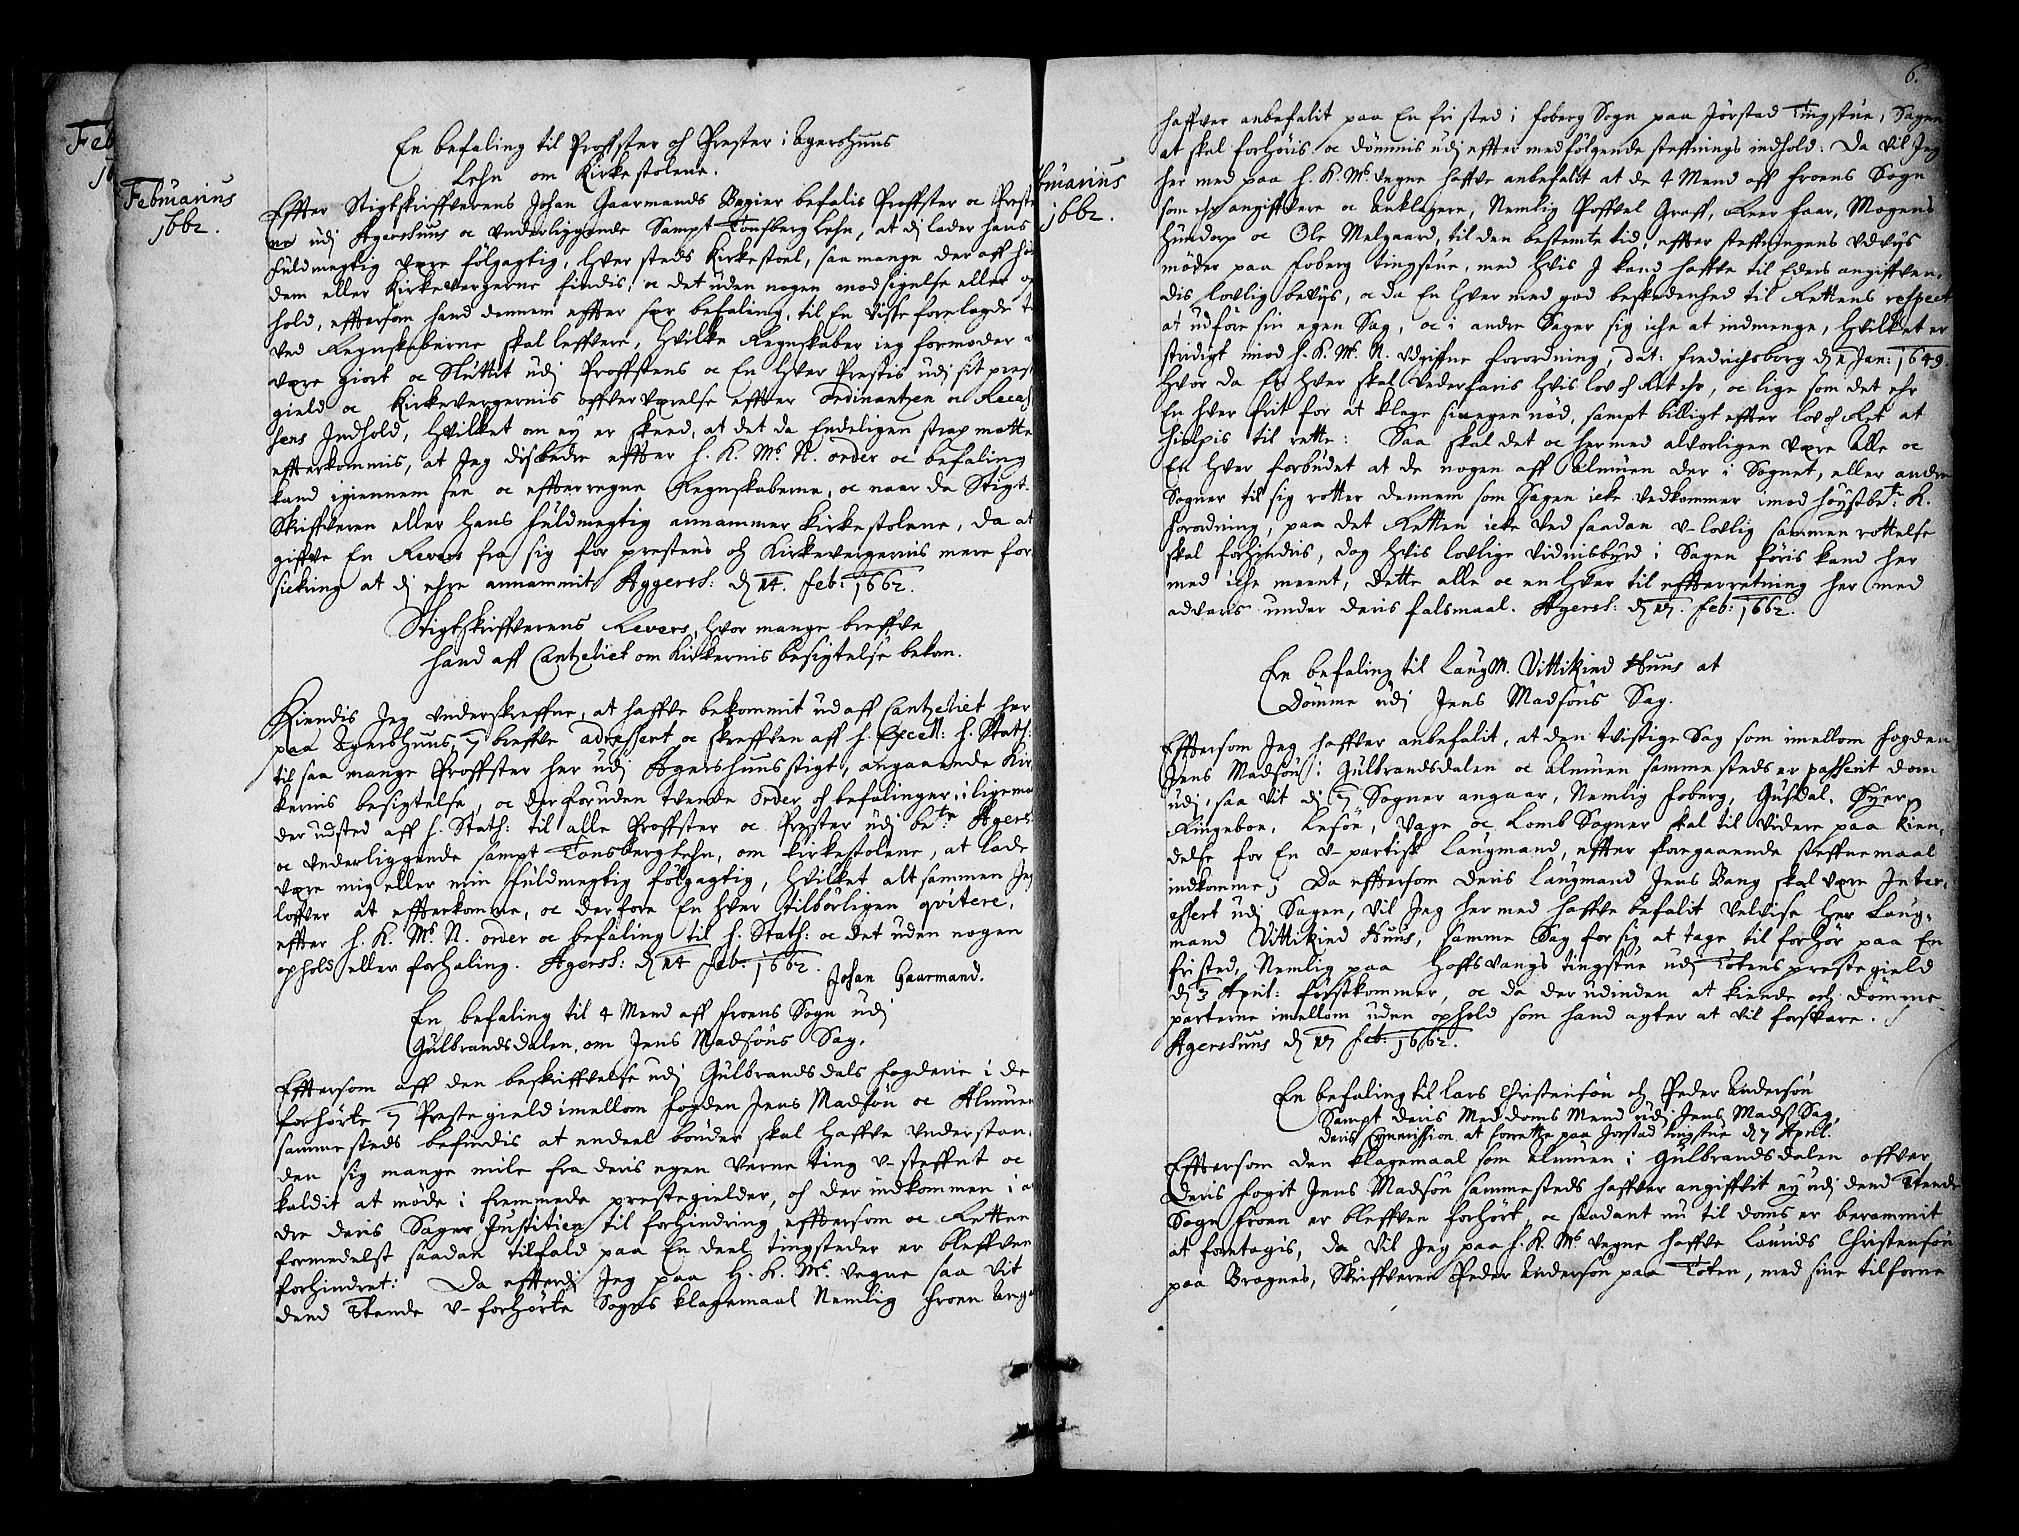 Februarius
1662.
En befaling til Proffster och Prester i Agershuus
Lehn om Kirkestolene.
Effter Stigtskriffverens Johan Gaarmands Begier befalis Proffster oc Preste
ne udj Agershuus oc underliggende Sampt Tonsberg Lehn, at dj lader hans
fuldmegtig være fölgagtig, hver steds Kirkestoel, saa mange der aff hös
dem eller Kirkevergerne findis, oc det uden nogen modsigelse eller op
hold, efftersom hand dennem effter sær befaling, til En visse forelagde t
ved Regnskaberne skal leffvere, hvilke Regnskaber ieg formoder a
være giort oc Sluttit udj Proffstens oc En hver Prestis udj sit prest
gield oc Kirkevergernis offververelse effter Ordinantzen oc Reces
sens Indhold, hvilket om ey er skeed, at det da Endeligen strax motte
efterkommis, at Jeg disbedre effter H. K. Ms. N. order oc befaling
kand igiennem see oc effterregne Regnskaberne, oc naar da Stigt-
Skriffveren eller hans fuldmegtig annammer Kirkestolene, da at
giffve En Revers fra sig for prestens och Kirkevergernis mere for
sickring at dj ehre annammit. Aggersh: d 14. feb: 1662.
Stigtskriffverens Revers, hvor mange breffve
hand aff Cantzeliet om Kirkernis besigtelse bekom.
Kiendis Jeg underskreffne, at haffve bekommit ud aff Cantzeliet her
paa Agershuus, 7 breffve adressert oc skreffven aff H. Excell: H. Stath:
til saa mange Proffster her udj Agershuus stigt, angaaende Kir-
kernis besigtelse, oc derforuden tvende Order och befalinger, i ligema
der udsted aff H. Stath: til alle Proffster oc Prester udj bete. Agers
oc underliggende sampt Tonsberg Lehn, om Kirkestolene, at lade
være mig eller min fuldmegtig fölgagtig, hvilket alt sammen Jeg
loffver at effterkomme, oc derfore En hver tilbörligen qvitere,
effter H. K. Ms. N. order oc befaling til H. Stath: oc det uden nogen
ophold eller forhaling. Agersh: d 14 feb: 1662.
Johan Gaarmand.
En befaling til 4 Mend aff froens Sogn udj
Gulbrandsdalen, om Jens Madsöns Sag.
Efftersom aff den beskriffvelse udj Gulbrandsdals fogderie i de
forhörte 7 Prestegield imellom fogden Jens Madsön oc Almuen
sammesteds befindis at endeel bönder skal haffve understan-
den sig mange mile fra deris egen Verneting u-steffnt oc
kaldit at möde i fremmede prestegielder, och der indkommen i an
dre deris Sager Justitien til forhindring, efftersom oc Retten
formedelst saadan tilfald paa En deel tingsteder er bleffven
forhindret: Da effterdj Jeg paa H. K. Ms. vegne saa vit
dend Ottende u-forhörte Sogns klagemaal Nemlig froen ang
6.
bruarius
1662.
haffver anbefalit paa En frj sted i foberg Sogn paa Jörstad Tingstue, Sagen
at skal forhöris oc dömmis udj effter medfölgende steffnings indhold: Da vil Jeg
her med paa H. K. Ms. vegne haffve anbefalit at de 4 Mend aff froens Sogn
som ehr angiffvere oc Anklagere, Nemlig Poffvel Graff, Peer faar, Mogens
Hundorp oc Ole Melgaard, til den bestemte tid, effter steffningens udviis
möder paa foberg tingstue, med hvis J kand haffve til Eders angiffven-
dis lovlig beviis, oc da En hver med god beskedenhed til Rettens respect
at udföre sin egen Sag, oc i andre Sager sig icke at indmenge, hvilket er
stridigt imod H. K. Ms. N. udgiffne forordning, dat: fredrichsborg d 2 Jan: 1649.
hvor da En hver skal vederfaris hvis lov och Ret ehr, oc lige som det ehr
En hver frit for at klage sin egen nöd, sampt billigt effter lov och Ret at
hielpis til rette: Saa skal det oc hermed alvorligen være alle oc
En hver forbudet at de nogen aff almuen der i Sognet, eller andre
Sogner til sig rotter dennem som Sagen icke vedkommer imod höystbete. K.
forordning, paa det Retten icke ved saadan u-lovlig sammenrottelse
skal forhindris, dog hvis lovlige vidnisbyrd i Sagen föris kand her
med icke meent, dette alle oc en hver til effterretning her med
advaris under deris falsmaal. Agersh: d 17. feb: 1662.
En befaling til LaugM. Vittikind Huus at
Dömme udj Jens Madsöns Sag.
Efftersom Jeg haffver anbefalit, at den tvistige Sag som imellom fogden
Jens Madsön i Gulbrandsdalen oc almuen sammesteds er passerit dom
udj, saa vit dj 7 Sogner angaar, Nemlig foberg, Gusdal, Öyer,
Ringeboe, Lesöe, Vage oc Lomb Sogner skal til videre paa kien-
delse for En u-partisk Laugmand, effter foregaaende steffnemaal
indkomme; Da efftersom Deris laugmand Jens Bang skal være Inter-
essert udj Sagen, vil Jeg her med haffve befalit velvise Her Laug-
mand Vittikind Huus, samme Sag for sig at tage til forhör paa En
frj sted, Nemlig paa Hoffsvangs tingstue udj Totens prestegield
d 3 April: förstkommer, oc da der udinden at kiende och dömme
parterne imellom uden ophold som hand agter at vil forsvare.
Agershuus d 17 feb: 1662.
En befaling til Lars Christensön och Peder Andersön
Sampt deris Meddoms Mend udj Jens Mads: Sag,
deris Commission at forrette paa Jorstad tingstue d 7 April.
Efftersom den klagemaal som almuen i Gulbrandsdalen offver
deris fogit Jens Madsön sammesteds haffver angiffvit ey udj dend Ottende
Sogn froen er bleffven forhört, oc saadant nu til doms er berammit
at foretagis, da vil Jeg paa H. K. Ms. vegne haffve Laurids Christensön
paa Bragnes, Skriffveren Peder Andersön paa Toten, med sine tilforne